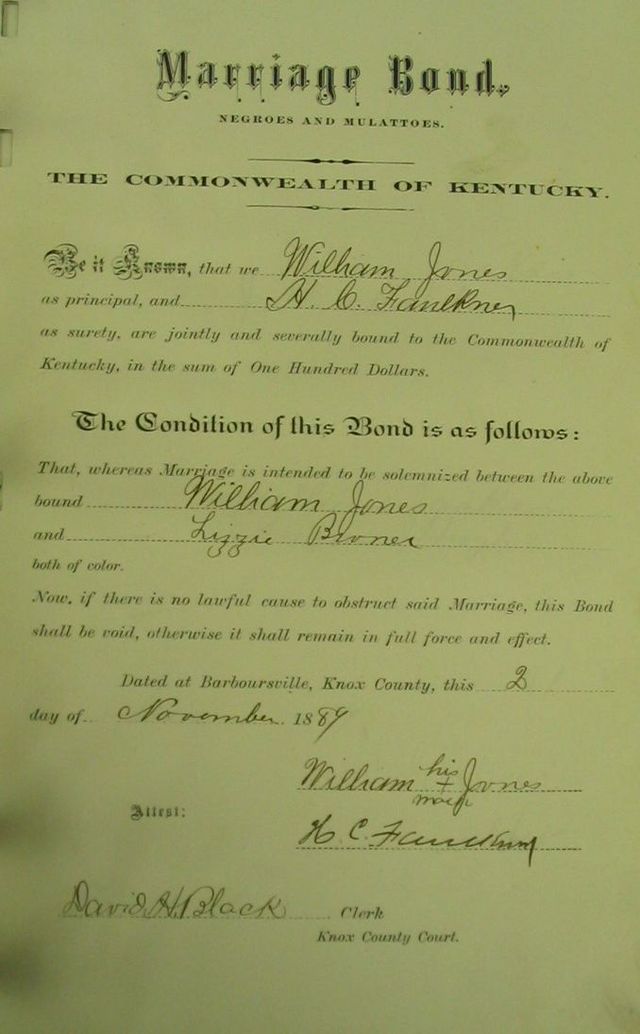 Marriage Bond.
NEGROES AND MULATTOES.
THE COMMONWEALTH OF KENTUCKY.
Be it Known, that we William Jones
as principal, and H. C. Faulkner
as surety, are jointly and severally bound to the Commonwealth of
Kentucky, in the sum of One Hundred Dollars.
The Condition of this Bond is as follows:
That, whereas Marriage is intended to be solemnized between the above
bound William Jones
and Lizzie
both of color.
Now, if there is no lawful cause to obstruct said Marriage, this Bond
shall be void, otherwise it shall remain in full force and effect.
Dated at Barboursville, Knox County, this 2
day of November 1889
his
William + Jones
mark
Attest:
H C Faulkner
David H. Black Clerk
Knox County Court.